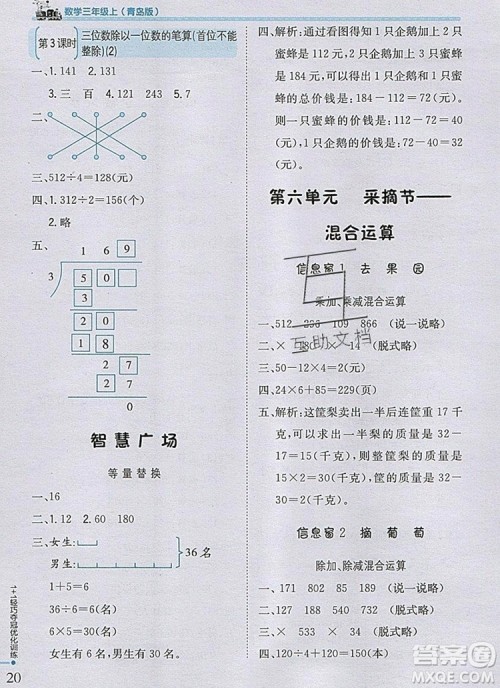 数学三年级上(青岛版)
第3课时
三位数除以一位数的笔算(首位不能
整除)(2)
一、1.141 2.111
3.三 百 4.121 243 5.7
二、
三、512÷4=128(元)
四、1.312÷2=156(个)
2.略
五、
1 6 9
3
5 0
3
2 0
1 8
2
0
智慧广场
等量替换
一、16
二、1.12 2.60 180
三、女生:
男生:
36名
1+5=6
36÷6=6(名)
6×5=30(名)
女生有6名,男生有30名。
1+1轻巧夺冠优化训练
20
四、解析:通过看图得知1个企鹅加上1只蜜
184元,
蜂的总价钱是:184-112=72(元)
则一只蜜蜂的价钱是:112-72=40
(元),一只企鹅的价钱是72-40=32
(元)。
第六单元 采摘节——
混合运算
信息窗1 去果园
乘加、乘减混合运算
一、512 236 109 866 (说一说略)
二、× 380 × 14 (脱式略)
三、50-12×4=2(元)
四、24×6+85=229(页)
五、解析:这筐梨卖出一半后连筐重17千
克,可知卖出的一半梨的质量是32-
17=15(千克),所以筐的质量是17-
15=2(千克)。
信息窗2 摘葡萄
除加、除减混合运算
一、171 802 85 189 (说一说略)
二、× 334 × 53 (脱式略)
四、120÷4+120=150(本)
互助文档
答案圈
MXQE.COM